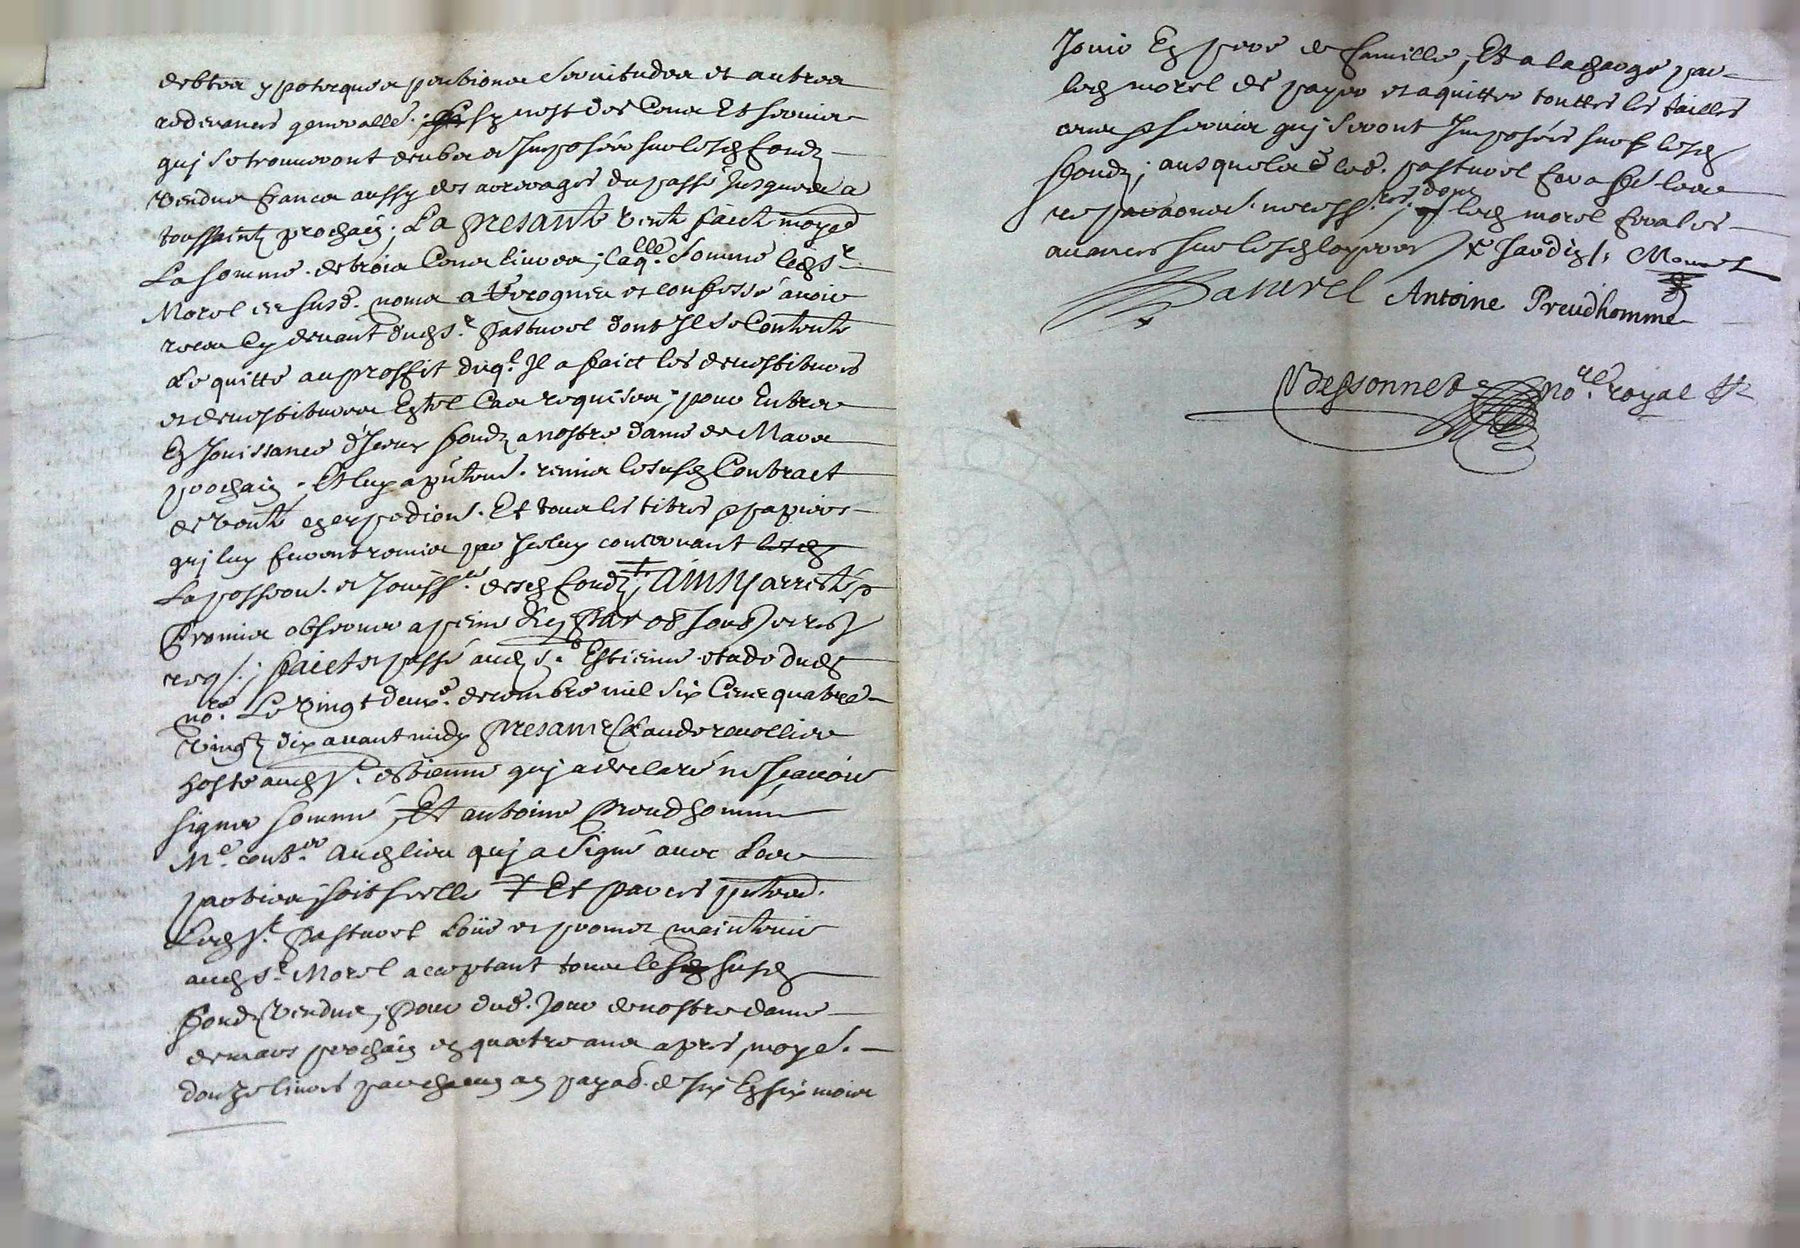 debtes ypoteques pentions servitudes et autres
redevances generalles; sy n'est des cens et servis
quj se trouveront deubs et Imposés sur lesd fondz
vendus francs aussy des arrerages du passé Jusques a
toussaintz prochain; La presante vente faicte moyed
La somme de trois Cens livres; laqlle somme led sr
Morel es susd. noms a Recogneu et confessé avoir
receu cy devant dud sr. pasturel dont Il se Contente
Le quitte au proffit duql. Il a faict les devestitures
et Investitures En tel Cas requises; pour Entrer
En Jouissance d'Iceux fondz a nostre dame de Mars
prochain. Et luy a remis lesusd Contract
de vente Et tous les titres papiers
quj luy furent remis par Iceluy concernant
La posseon. et Jouiss.ce desd fondz; Ainsy arresté
Promis observer a peine
req.; faict et passé aud St. Estienne estude dud
nore. Le vingt deuxe. decembre mil six Cens quatre
vingtz dix avant midy presant Claude
hoste aud St. estienne quj a declaré ne sçavoir
signer sommé, Et antoine Preudhomme
Me. aud lieu quj a signé avec Les
parties soit seellé + Et par ces
Led Sr. pasturel Loüe et promet maintenir
aud sr. Morel acceptant tous le susd
fondz vendus, pour dud. Jour de nostre dame
de mars prochain en quatre ans apres, moye.
douze livres par chacun an payab. de six En six mois
Jouir En pere de famille, Et a la charge par
led morel de payer et aquitter touttes les tailles
cens et servis quj seront Imposées sur lesd
fondz; ausquels led. pasturel fera fe. les
reparaons. necess.res; dont led morel fera les
avances sur lesd loyers
Pasturel Antoine Preudhomme
Bessonnet nore. royal